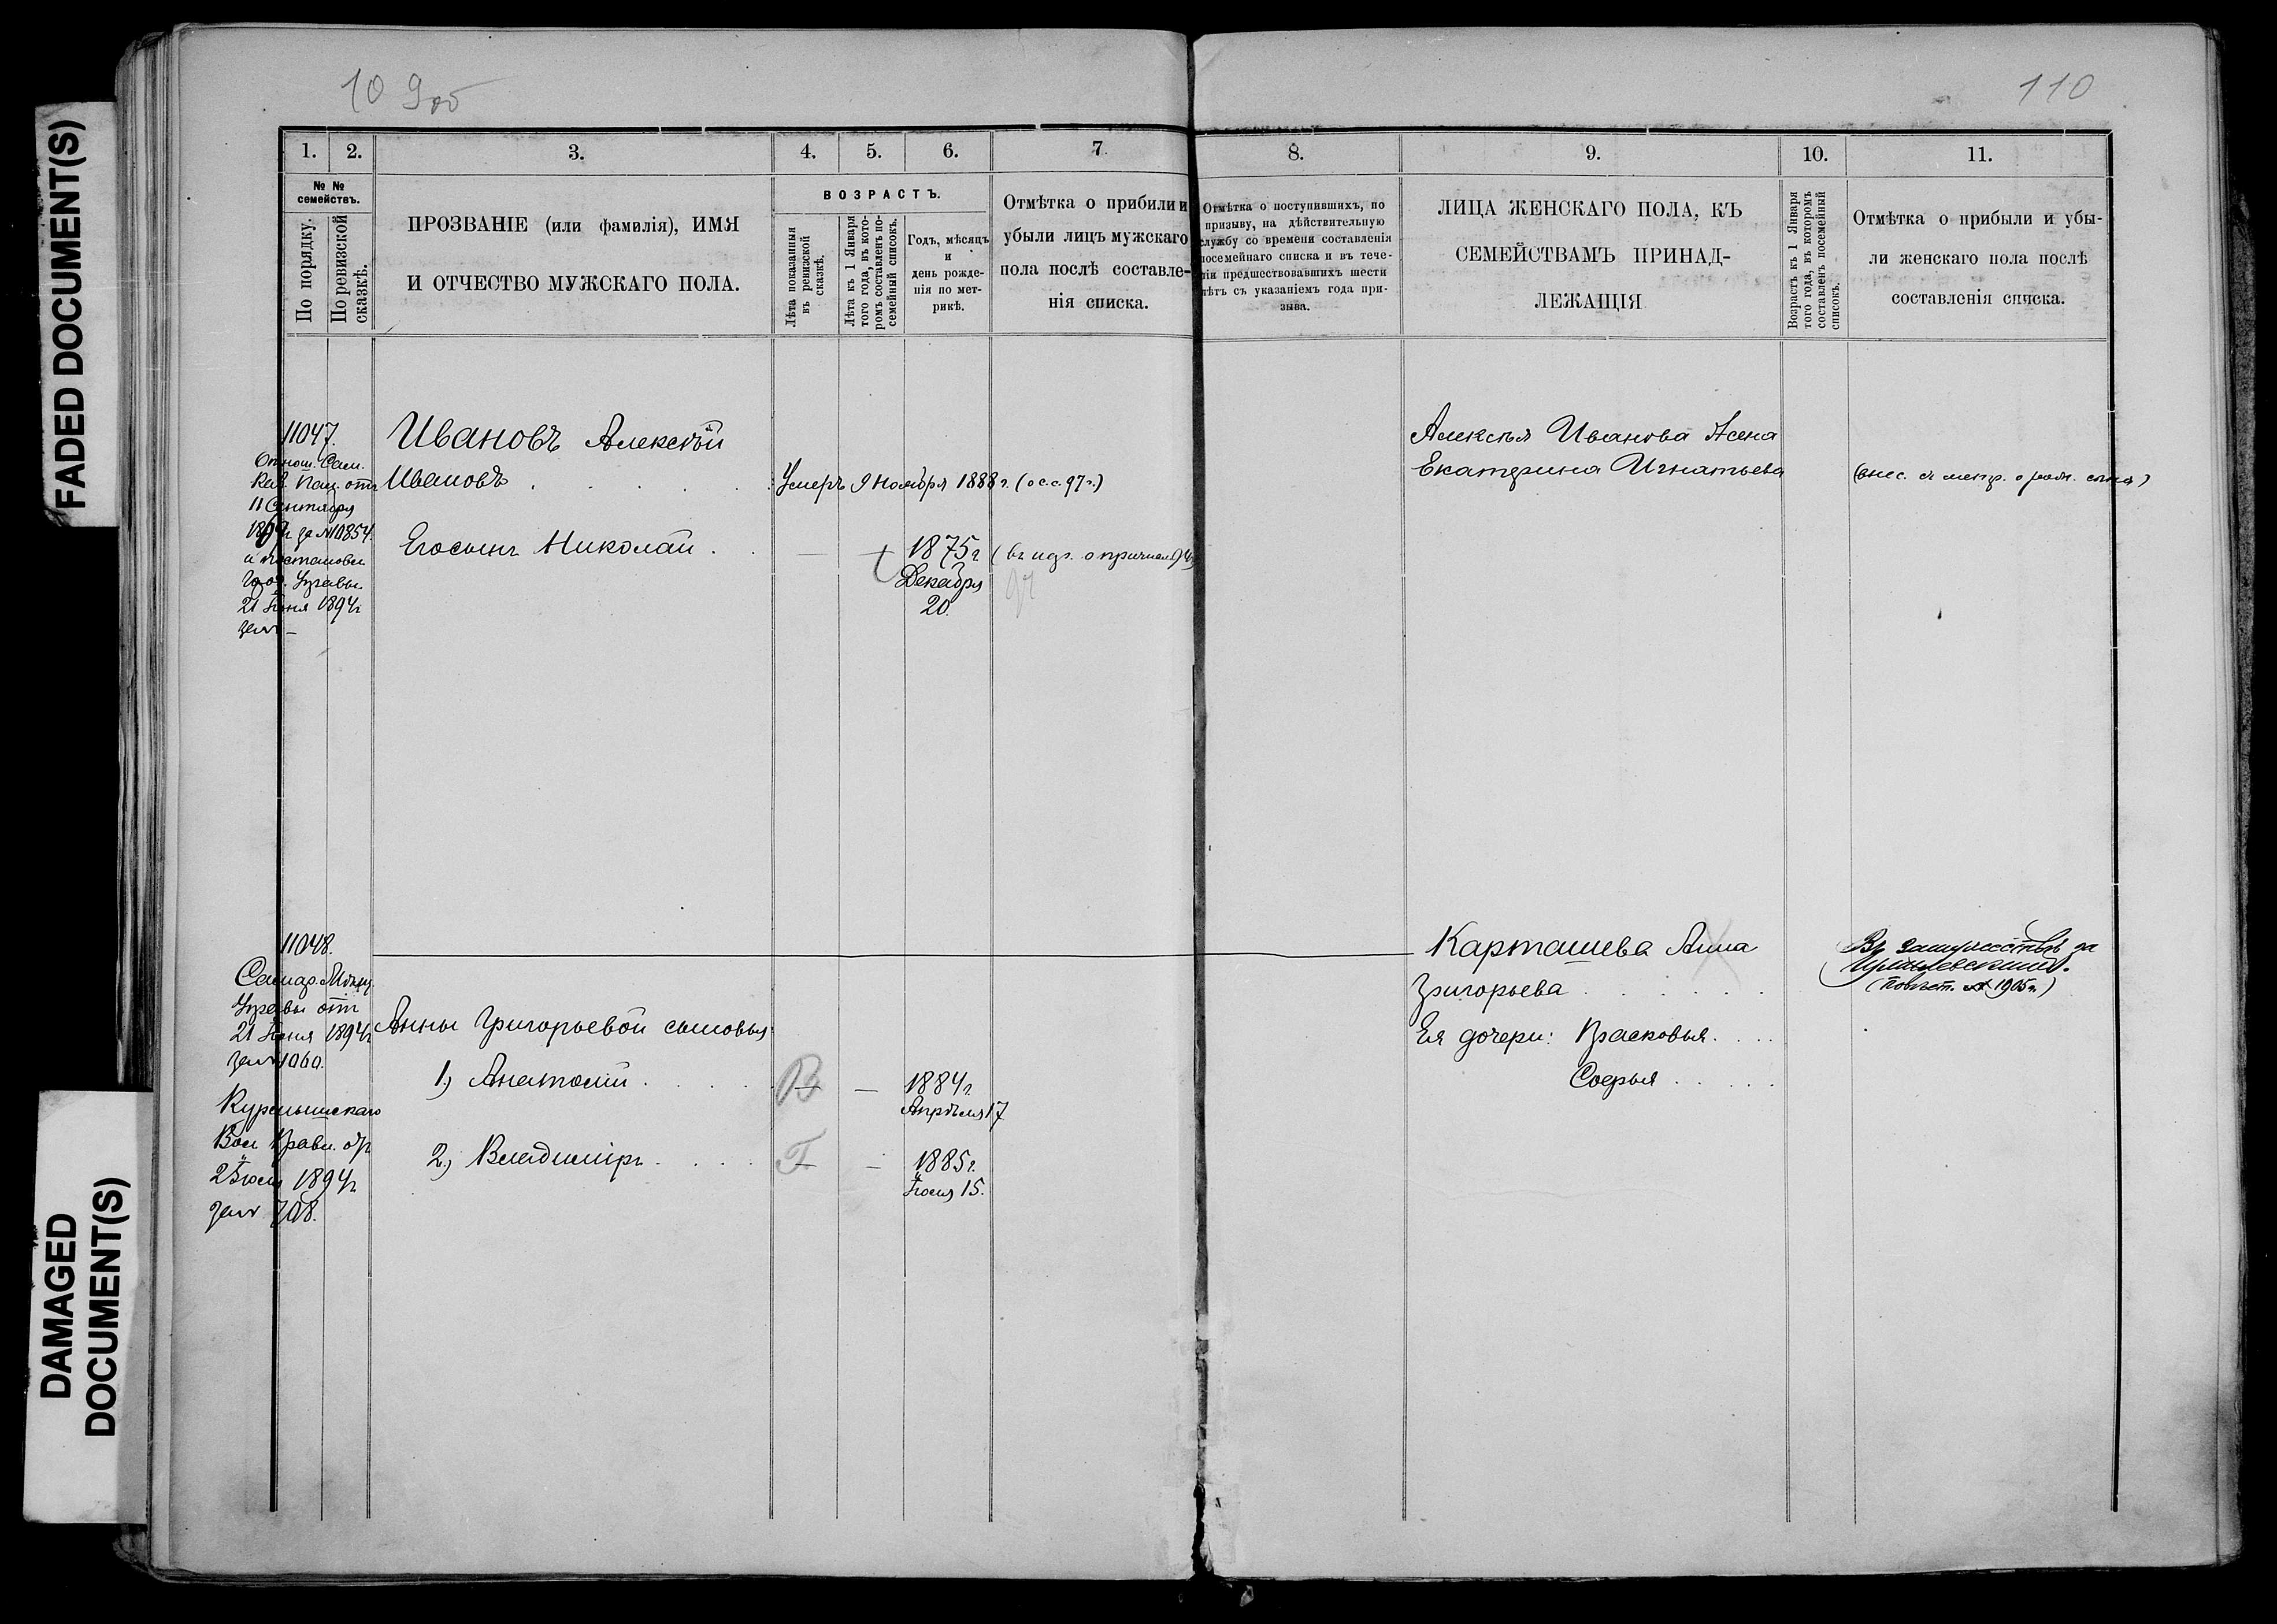 FADED DOCUMENT(S)
DAMAGED
DOCUMENT(S)
109об
110
1.
2.
3.
4.
5.
6.
7
8.
9.
10.
11.
№ №
семействъ.
По порядку.
По ревизской
сказкѣ.
ПРОЗВАНІЕ (или фамилія), ИМЯ
И ОТЧЕСТВО МУЖСКАГО ПОЛА.
ВОЗРАСТЪ.
Лѣта показанныя
въ ревизской
сказкѣ.
Лѣта къ 1 Января
того года, въ кото-
ромъ составленъ по-
семейный списокъ.
Годъ, мѣсяцъ
и
день рожде-
нія по мет-
рикѣ.
Отмѣтка о прибили и
убыли лицъ мужскаго
пола послѣ составле-
нія списка.
Отмѣтка о поступившихъ, по
призыву, на дѣйствительную
службу со времени составленія
посемейнаго списка и въ тече-
ніи предшествовавшихъ шести
лѣтъ съ указаніемъ года при-
зыва.
ЛИЦА ЖЕНСКАГО ПОЛА, КЪ
СЕМЕЙСТВАМЪ ПРИНАД-
ЛЕЖАЩІЯ
Возрастъ къ 1 Января
того года, въ которомъ
составленъ посемейный
списокъ.
Отмѣтка о прибыли и убы-
ли женскаго пола послѣ
составленія списка.
11047.
Отнош. Сам.
Каз. Пал. отъ
11 Сентября
за № 10854.
и постановл.
Гор. Управы
21 Іюня 1894г
за № —
Ивановъ Алексѣй
Ивановъ
Умеръ 9 Ноября 1888 г. (о с.с. 97 г.)
Его сынъ Николай
1875г
Декабря
20.
Алексѣя Иванова Жена
Екатерина Игнатьева
11048.
Самар. Мѣщ.
Управы отъ
21 Іюня 1894г
за № 1060.
Курмышскаго
Вол. Правл. от
2 Іюля 1894г
за № 708.
Анны Григорьевой сыновья:
1.) Анатолій
В
1884г.
Апрѣля 17
2.) Владиміръ
Г
1885г.
Іюля 15.
Карташева Анна
Григорьева
Ея дочери: Прасковья
Софья
Въ замужествѣ за
1905г.)